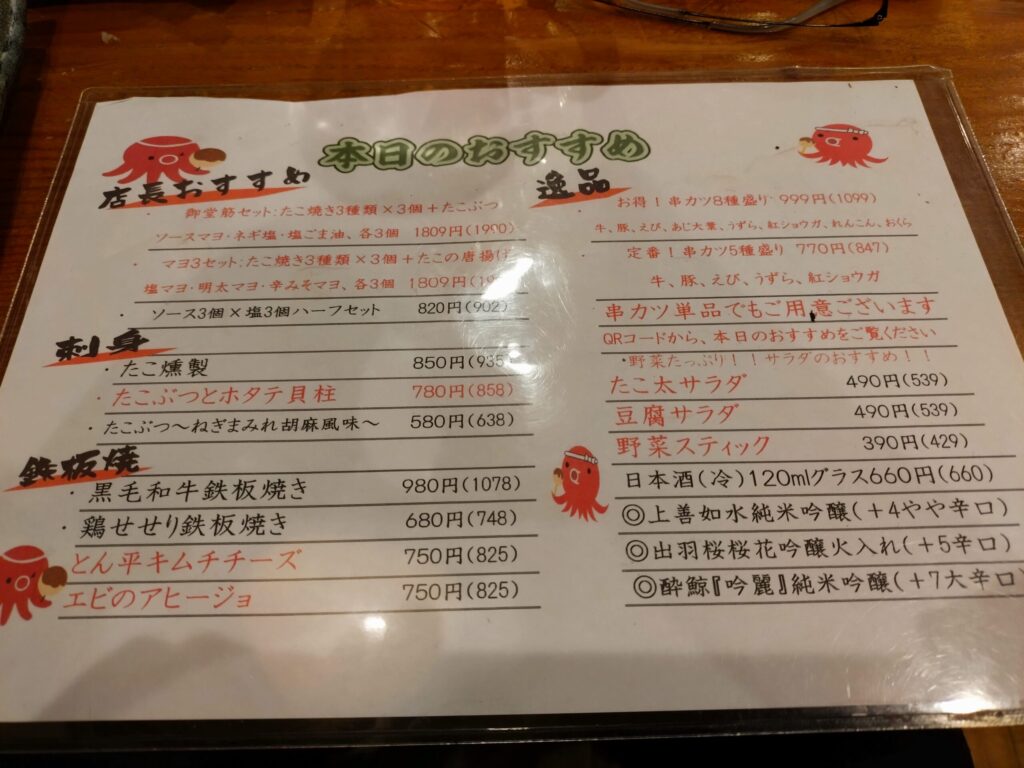 本日のおすすめ
店長おすすめ
・御堂筋セット:たこ焼き3種類×3個+たこぶつ
ソースマヨ・ネギ塩・塩ごま油、各3個 1809円(1990)
・マヨ3セット:たこ焼き3種類×3個+たこの唐揚げ
塩マヨ・明太マヨ・辛みそマヨ、各3個 1809円
・ソース3個×塩3個ハーフセット 820円(902)
刺身
・たこ燻製 850円(935)
・たこぶつとホタテ貝柱 780円(858)
・たこぶつ〜ねぎまみれ胡麻風味〜 580円(638)
鉄板焼
・黒毛和牛鉄板焼き 980円(1078)
・鶏せせり鉄板焼き 680円(748)
とん平キムチチーズ 750円(825)
エビのアヒージョ 750円(825)
逸品
・お得!串カツ8種盛り 999円(1099)
牛、豚、えび、あじ大葉、うずら、紅ショウガ、れんこん、おくら
・定番!串カツ5種盛り 770円(847)
牛、豚、えび、うずら、紅ショウガ
串カツ単品でもご用意ございます
QRコードから、本日のおすすめをご覧ください
・野菜たっぷり!!サラダのおすすめ!!
たこ太サラダ 490円(539)
豆腐サラダ 490円(539)
野菜スティック 390円(429)
日本酒(冷)120mlグラス660円(660)
◎上善如水純米吟醸(+4やや辛口)
◎出羽桜桜花吟醸火入れ(+5辛口)
◎酔鯨『吟麗』純米吟醸(+7大辛口)